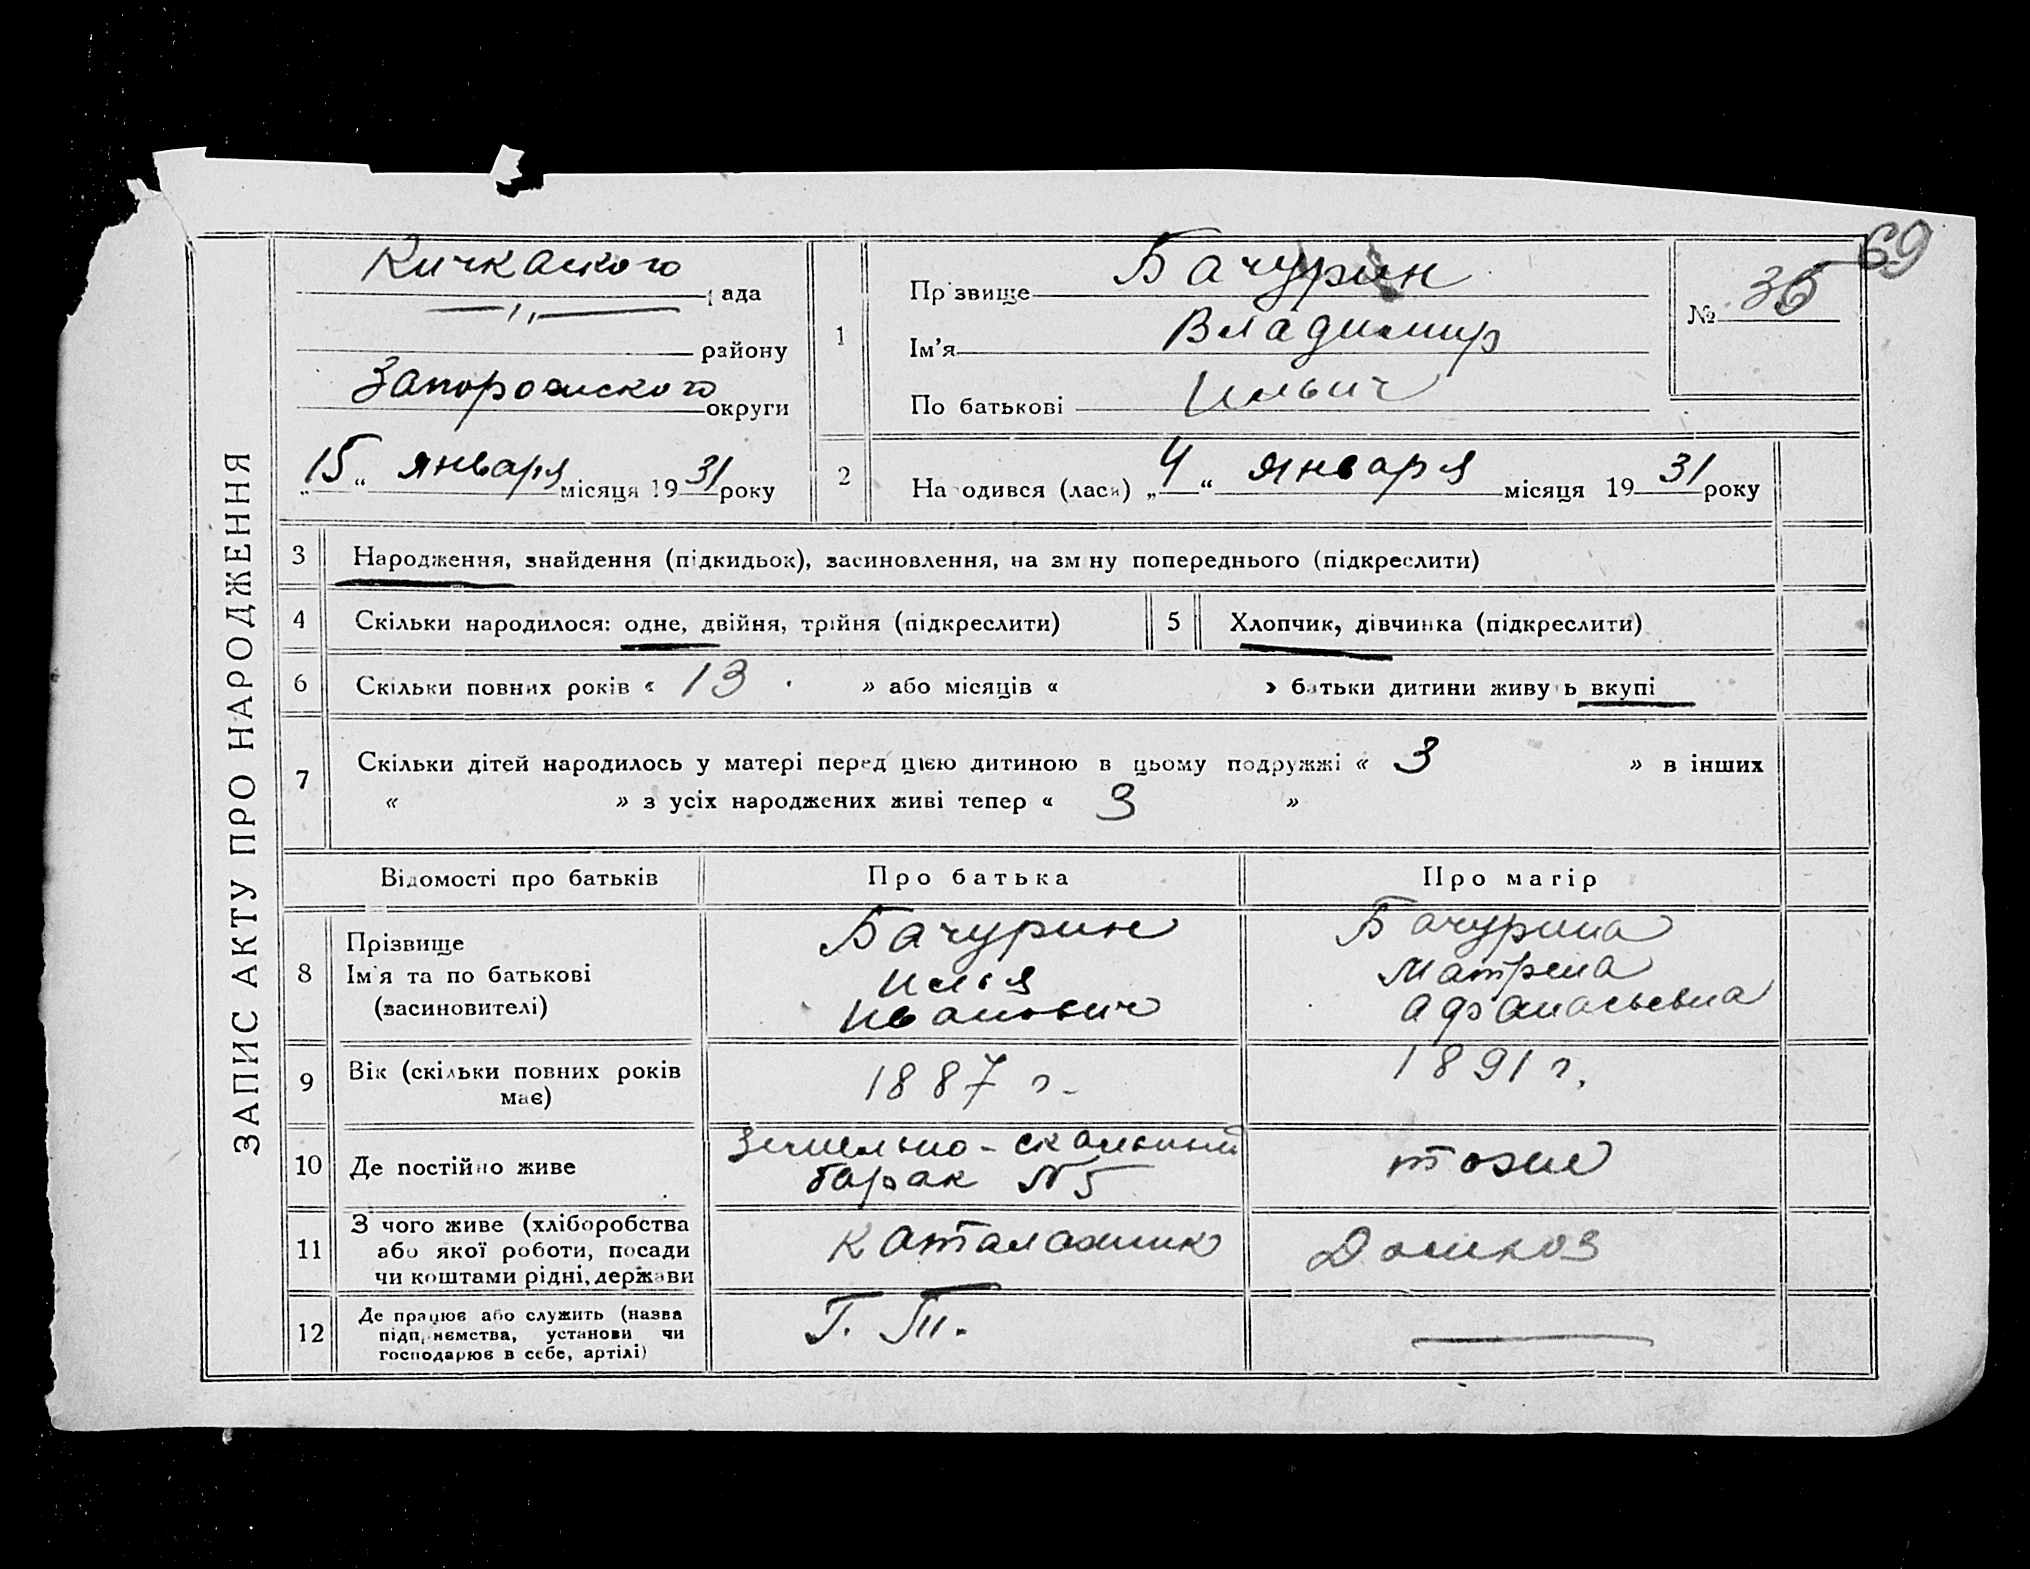 69
ЗАПИС АКТУ ПРО НАРОДЖЕННЯ
Кичкаского
рада
—〃—
району
Запорожского
округи
„15“ января місяця 1931 року
1
Прізвище Бачурин
Ім'я Владимир
По батькові Ильич
№ 36
2
Народився (лася) „4“ января місяця 1931 року
3 Народження, знайдення (підкидьок), засиновлення, на зміну попереднього (підкреслити)
4 Скільки народилося: одне, двійня, трійня (підкреслити)
5 Хлопчик, дівчинка (підкреслити)
6 Скільки повних років « 13 . » або місяців « » батьки дитини живуть вкупі
7 Скільки дітей народилось у матері перед цією дитиною в цьому подружжі « 3 » в інших
« » з усіх народжених живі тепер « 3 »
Відомості про батьків Про батька Про матір
8
Прізвище
Ім'я та по батькові
(засиновителі)
Бачурин
Илья
Иванович
Бачурина
Матрена
Афанасьевна
9
Вік (скільки повних років
має)
1887 г.
1891 г.
10 Де постійно живе
Земельно-скальный
барак N5
тоже
11
З чого живе (хліборобства
або якої роботи, посади
чи коштами рідні, держави
Каталажник
Домхоз
12
Де працює або служить (назва
підприємства, установи чи
господарює в себе, артілі)
Г. П.
—